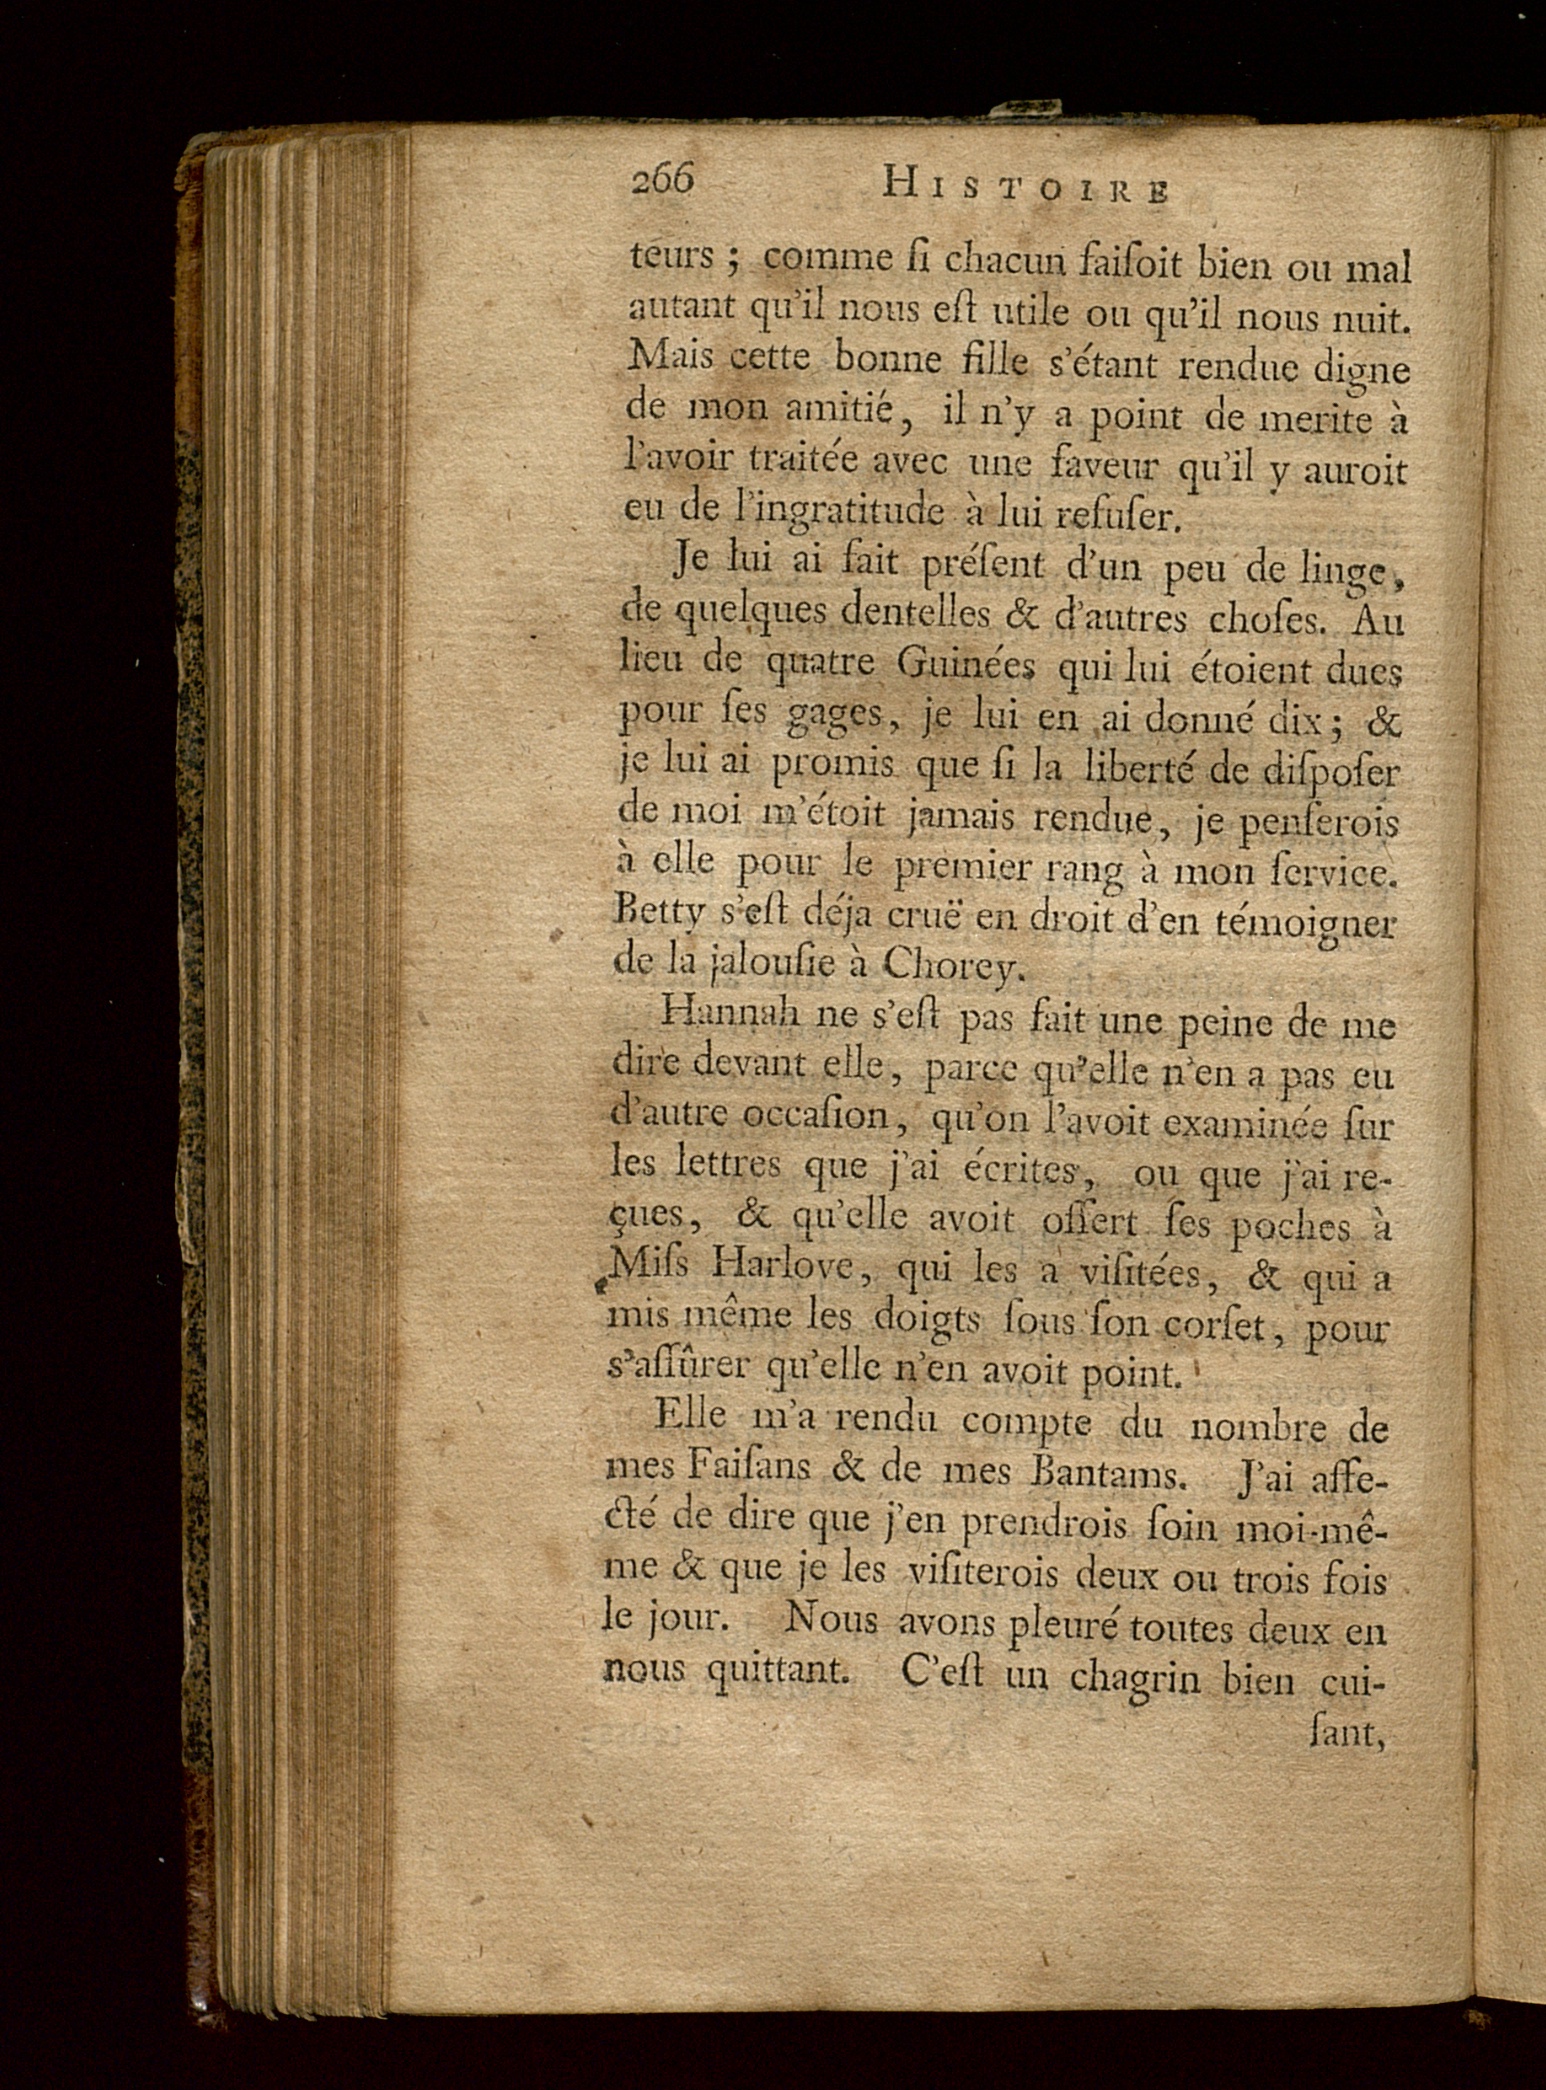 266 HISTOIRE
teurs ; comme ſi chacun faiſoit bien ou mal
autant qu'il nous eſt utile ou qu'il nous nuit.
Mais cette bonne fille s'étant rendue digne
de mon amitié, il n'y a point de merite à
l'avoir traitée avec une faveur qu'il y auroit
eu de l'ingratitude à lui refuſer.
Je lui ai fait préſent d'un peu de linge,
de quelques dentelles & d'autres choſes. Au
lieu de quatre Guinées qui lui étoient dues
pour ſes gages, je lui en ai donné dix ; &
je lui ai promis que ſi la liberté de diſpoſer
de moi m'étoit jamais rendue, je penſerois
à elle pour le premier rang à mon ſervice.
Betty s'eſt déja cruë en droit d'en témoigner
de la jalouſie à Chorey.
Hannah ne s'eſt pas fait une peine de me
dire devant elle, parce qu'elle n'en a pas eu
d'autre occaſion, qu'on l'avoit examinée ſur
les lettres que j'ai écrites, ou que j'ai re-
çues, & qu'elle avoit offert ſes poches à
Miſs Harlove, qui les a viſitées, & qui a
mis même les doigts ſous ſon corſet, pour
s'aſſûrer qu'elle n'en avoit point.
Elle m'a rendu compte du nombre de
mes Faiſans & de mes Bantams. J'ai affe-
cté de dire que j'en prendrois ſoin moi-mê-
me & que je les viſiterois deux ou trois fois
le jour. Nous avons pleuré toutes deux en
nous quittant. C'eſt un chagrin bien cui-
ſant,